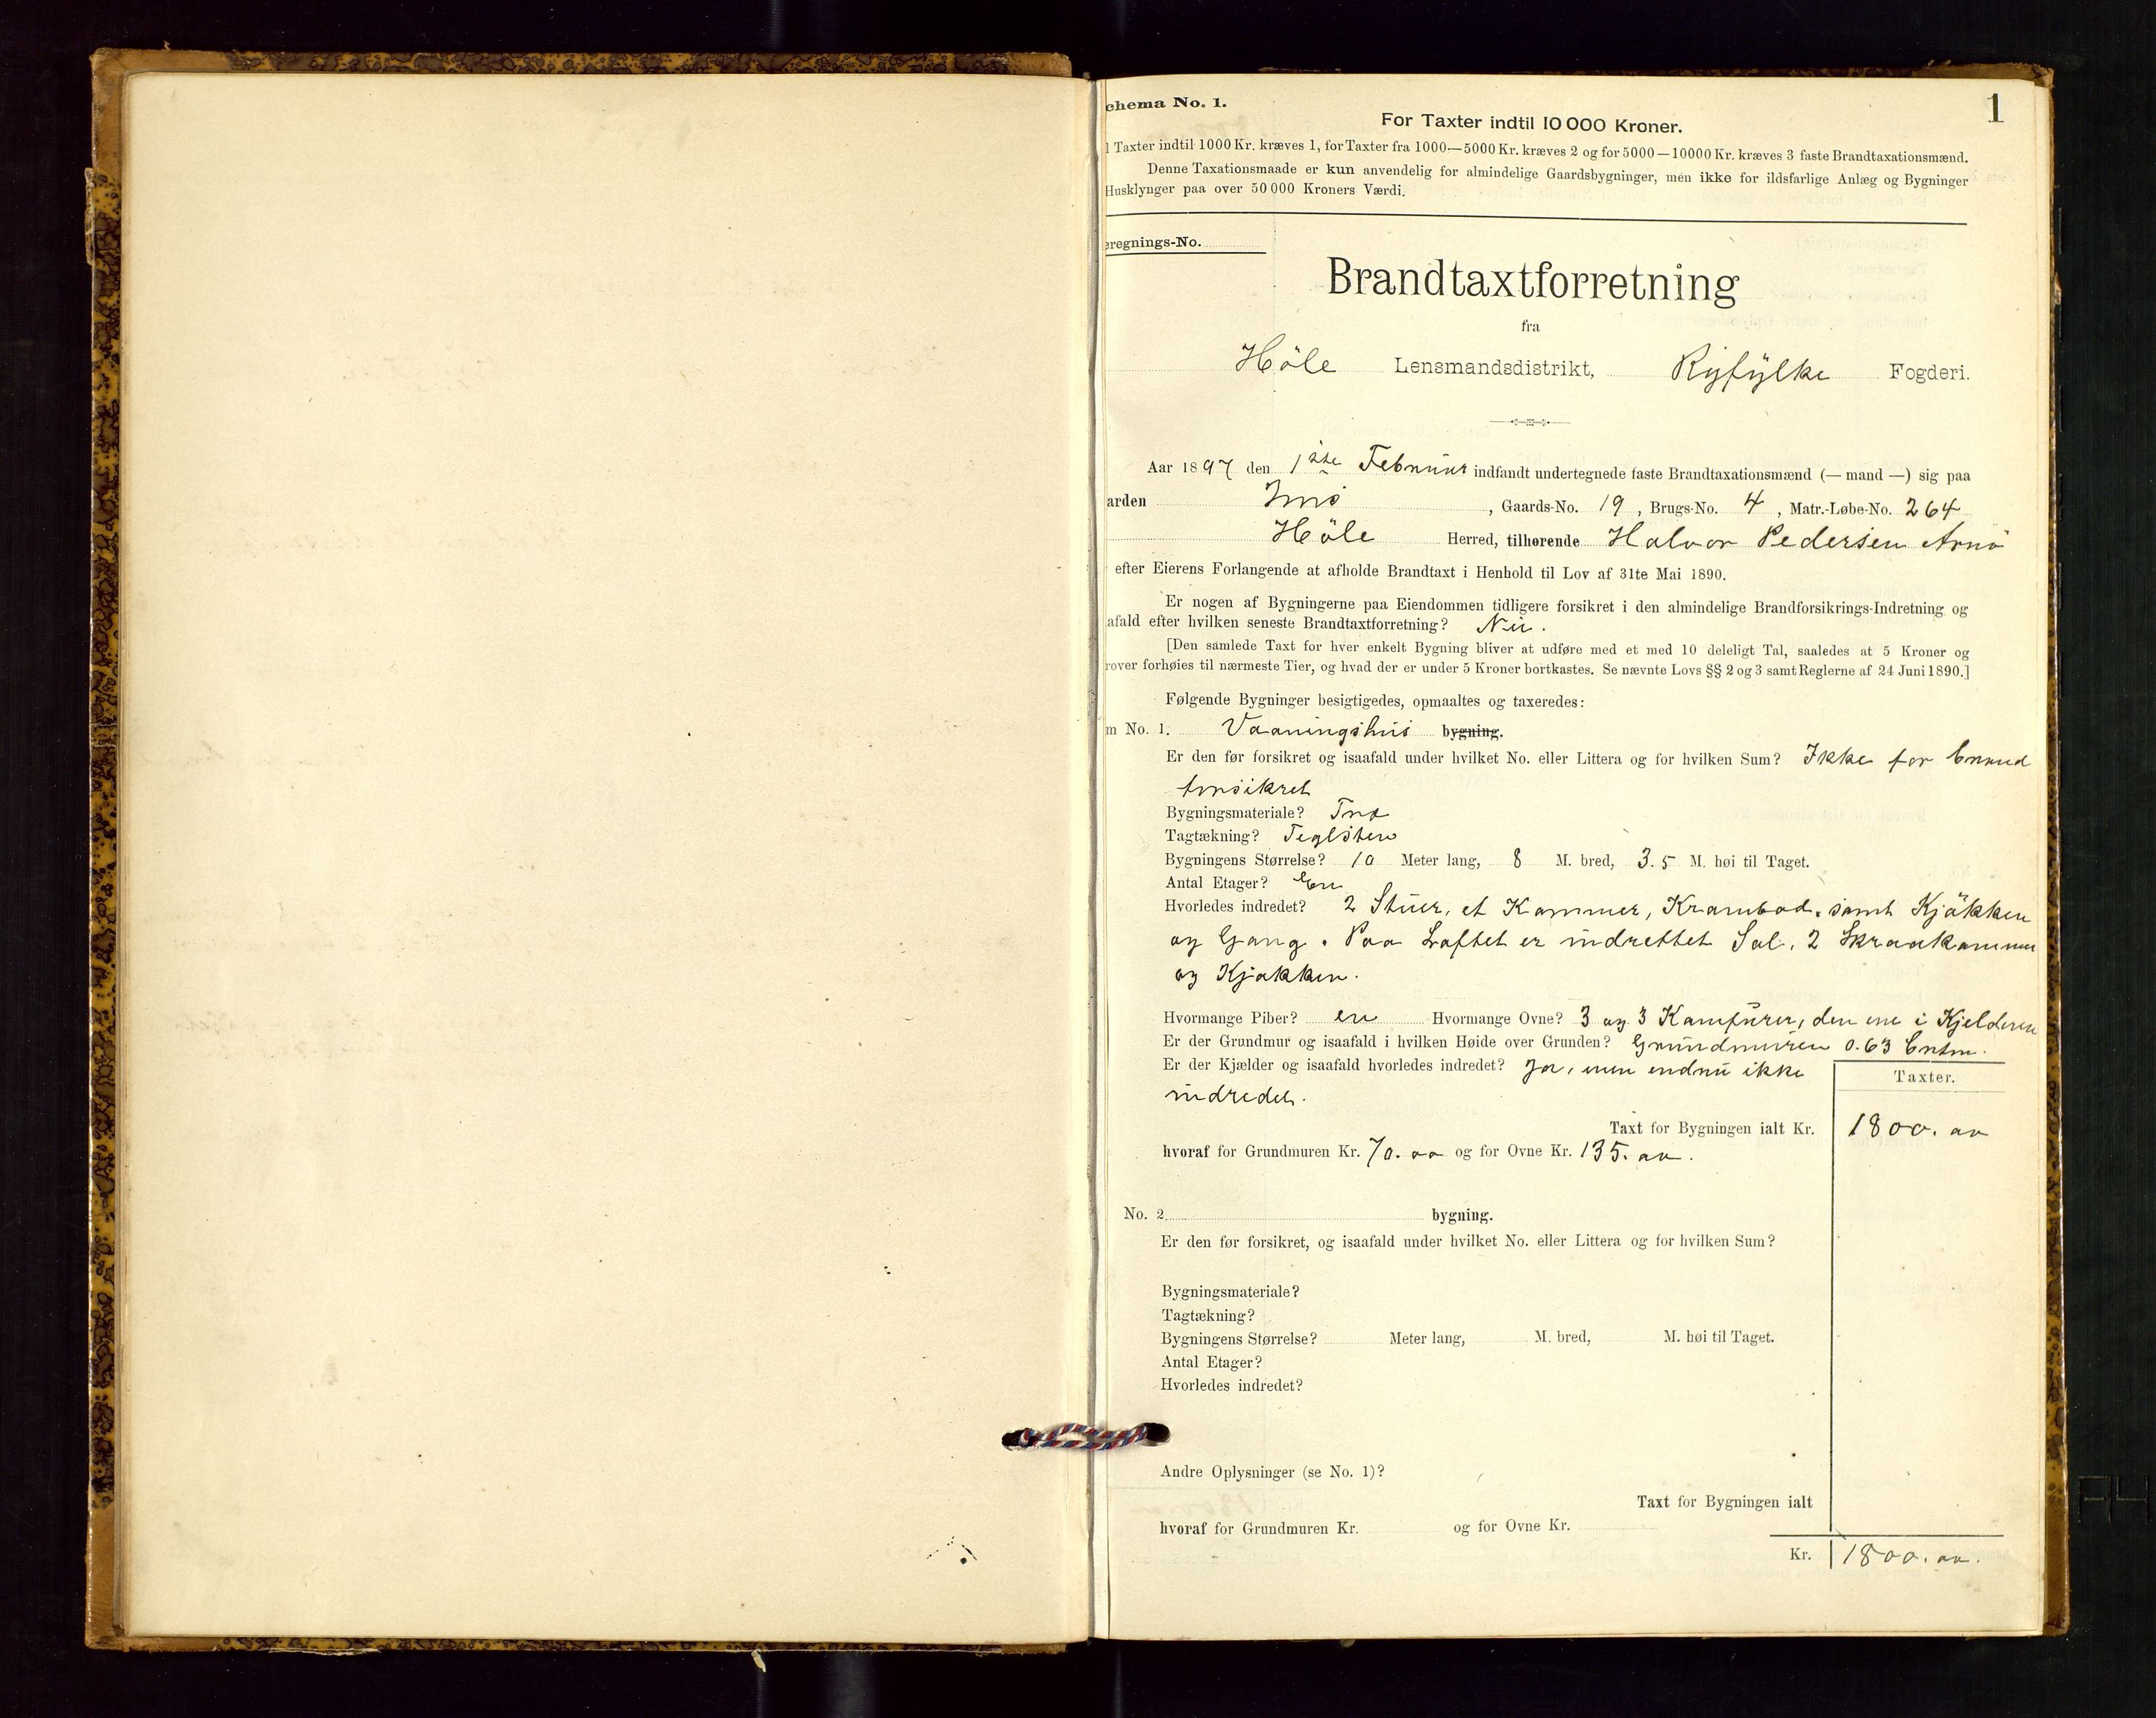 1
chema No. 1.
For Taxter indtil 10 000 Kroner.
l Taxter indtil 1000 Kr. kræves 1, for Taxter fra 1000—5000 Kr. kræves 2 og for 5000—10000 Kr. kræves 3 faste Brandtaxationsmænd.
Denne Taxationsmaade er kun anvendelig for almindelige Gaardsbygninger, men ikke for ildsfarlige Anlæg og Bygninger
Husklynger paa over 50 000 Kroners Værdi.
eregnings-No.
Brandtaxtforretning
fra
Höle Lensmandsdistrikt, Ryfylke Fogderi.
Aar 1897 den 1ste Februar indfandt undertegnede faste Brandtaxationsmænd (— mand —) sig paa
arden , Gaards-No. 19 , Brugs-No. 4 , Matr.-Løbe-No. 264
Höle Herred, tilhørende Halvor Pedersen
efter Eierens Forlangende at afholde Brandtaxt i Henhold til Lov af 31te Mai 1890.
Er nogen af Bygningerne paa Eiendommen tidligere forsikret i den almindelige Brandforsikrings-Indretning og
afald efter hvilken seneste Brandtaxtforretning? Nei.
[Den samlede Taxt for hver enkelt Bygning bliver at udføre med et med 10 deleligt Tal, saaledes at 5 Kroner og
rover forhøies til nærmeste Tier, og hvad der er under 5 Kroner bortkastes. Se nævnte Lovs §§ 2 og 3 samt Reglerne af 24 Juni 1890.]
Følgende Bygninger besigtigedes, opmaaltes og taxeredes:
m No. 1. Vaaningshus bygning.
Er den før forsikret og isaafald under hvilket No. eller Littera og for hvilken Sum? Ikke før brand
forsikret
Bygningsmateriale? Træ
Tagtækning? Teglsten
Bygningens Størrelse? 10 Meter lang, 8 M. bred, 3.5 M. høi til Taget.
Antal Etager? En
Hvorledes indredet? 2 Stuer, et Kammer, Krambod, samt Kjökken
og Gang. Paa Loftet er indrettet Sal, 2 Skraakammer
og Kjøkken.
Hvormange Piber? en Hvormange Ovne? 3 og 3 Kamfurer, den ene i Kjelderen
Er der Grundmur og isaafald i hvilken Høide over Grunden? Grundmuren 0.63 Centm.
Er der Kjælder og isaafald hvorledes indredet? Ja, men endnu ikke
indredet.
Taxter.
Taxt for Bygningen ialt Kr. 1800. oo
hvoraf for Grundmuren Kr. 70. oo og for Ovne Kr. 135. oo.
No. 2. bygning.
Er den før forsikret, og isaafald under hvilket No. eller Littera og for hvilken Sum?
Bygningsmateriale?
Tagtækning?
Bygningens Størrelse? Meter lang, M. bred, M. høi til Taget.
Antal Etager?
Hvorledes indredet?
Andre Oplysninger (se No. 1)?
Taxt for Bygningen ialt
hvoraf for Grundmuren Kr. og for Ovne Kr.
Kr. 1800. oo.